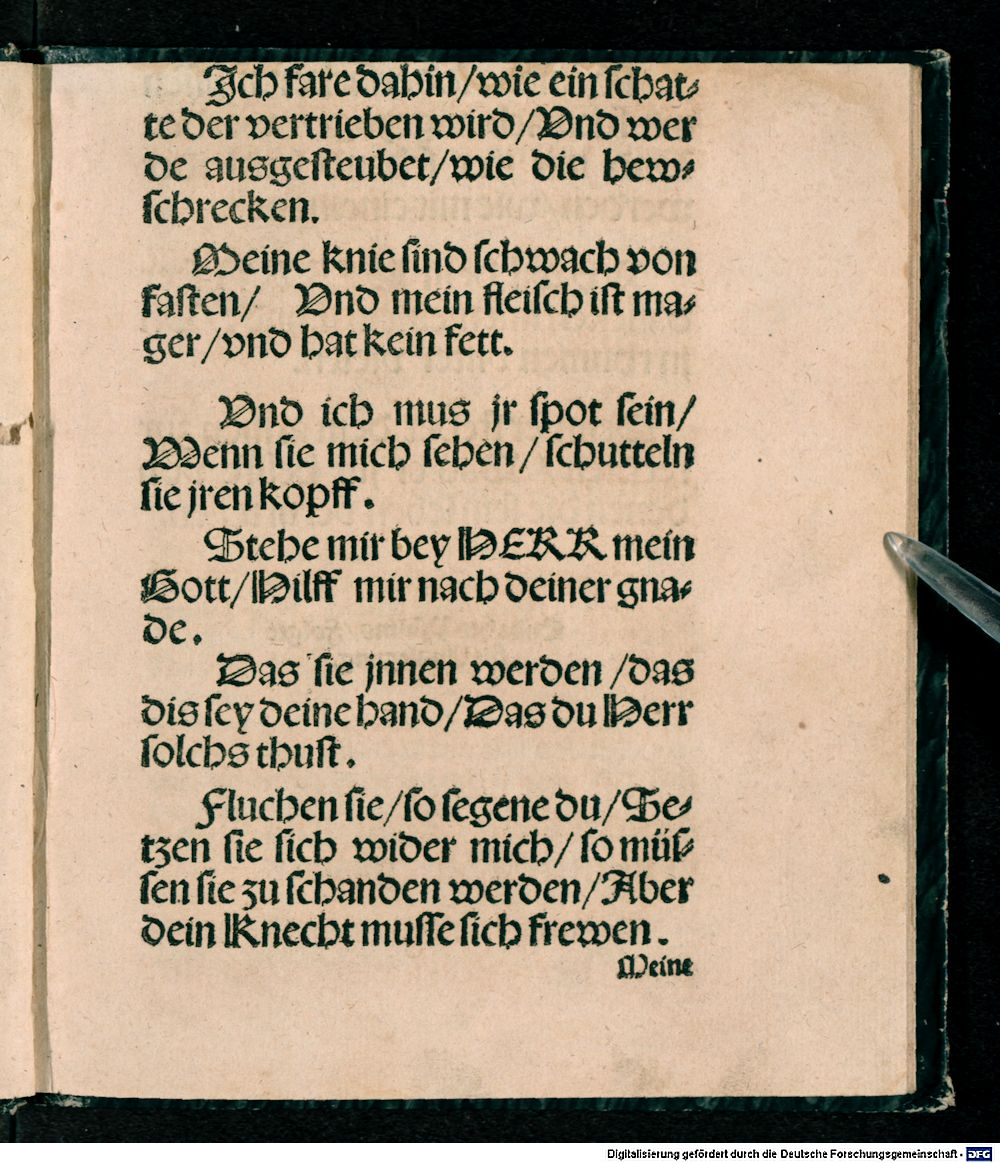 Ich fare dahin/wie ein ſchat⸗
te der vertrieben wird/Vnd wer
de ausgeſteubet/wie die hew⸗
ſchrecken.
Meine knie ſind ſchwach von
faſten/ Vnd mein fleiſch iſt ma⸗
ger/vnd hat kein fett.
Vnd ich mus jr ſpot ſein/
Wenn ſie mich ſehen/ſchutteln
ſie jren kopff.
Stehe mir bey HERR mein
Gott/Hilff mir nach deiner gna⸗
de.
Das ſie jnnen werden/das
dis ſey deine hand/Das du Herr
ſolchs thuſt.
Fluchen ſie/ſo ſegene du/Se⸗
tzen ſie ſich wider mich/ſo müſ⸗
ſen ſie zu ſchanden werden/Aber
dein Knecht muſſe ſich frewen.
Meine
Digitalisierung gefördert durch die Deutsche Forschungsgemeinschaft - DFG